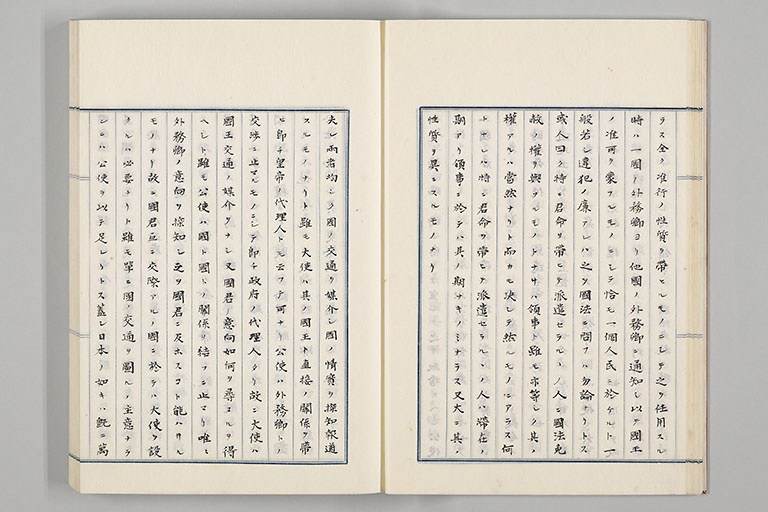 ラス全ク准行ノ性質ヲ帶ヒルモノニシテ之ヲ任用スル
時ハ一國ノ外務卿ヨリ他國ノ外務卿ニ通知シ以テ國王
ノ准可ヲ蒙フルモノニシテ恰モ一個人民ニ於ケルト一
般若シ違犯ノ廉アレハ之ヲ國法ニ問フハ勿論ナリトス
或人曰ク特ニ君命ヲ帶ヒテ派遣セラルヽノ人ニ國法免
赦ノ權ヲ與フルモノトナサハ領事ト雖モ亦等シク其ノ
權アルハ當然ナリト而カモ決シテ然ルモノニアラス何
トナレハ特ニ君命ヲ帶ヒテ派遣セラルヽノ人ハ滯在ノ
期アリ領事ニ於テハ其ノ期ナキノミナラス又大ニ其ノ
性質ヲ異ニスルモノナリ
夫レ両者均シク國ノ交通ヲ媒介シ國ノ情實ヲ探知報道
スルモノナリト雖モ大使ハ其ノ國王ト直接ノ關係ヲ帶
ヒ即チ皇帝ノ代理人トモ云フテ可ナリ公使ハ外務卿トノ
交渉ニ止マルモノニシテ即チ政府ノ代理人タリ故ニ大使ハ
國王交通ノ媒介ヲナシ又國君ノ意向如何ヲ尋ヌルヲ得
ヘシト雖モ公使ハ國ト國トノ關係ヲ結フニ止マリ唯ニ
外務卿ノ意向ヲ探知シ之ヲ國君ニ及ホスコト能ハサル
モノナリ故ニ國君互ニ交際アルノ國ニ於テハ大使ヲ設
クルハ必要ナリト雖モ單ニ國ノ交通ヲ圖ルノ主意ナラ
シニハ公使ヲ以テ足レリトス蓋シ日本ノ如キハ既ニ萬